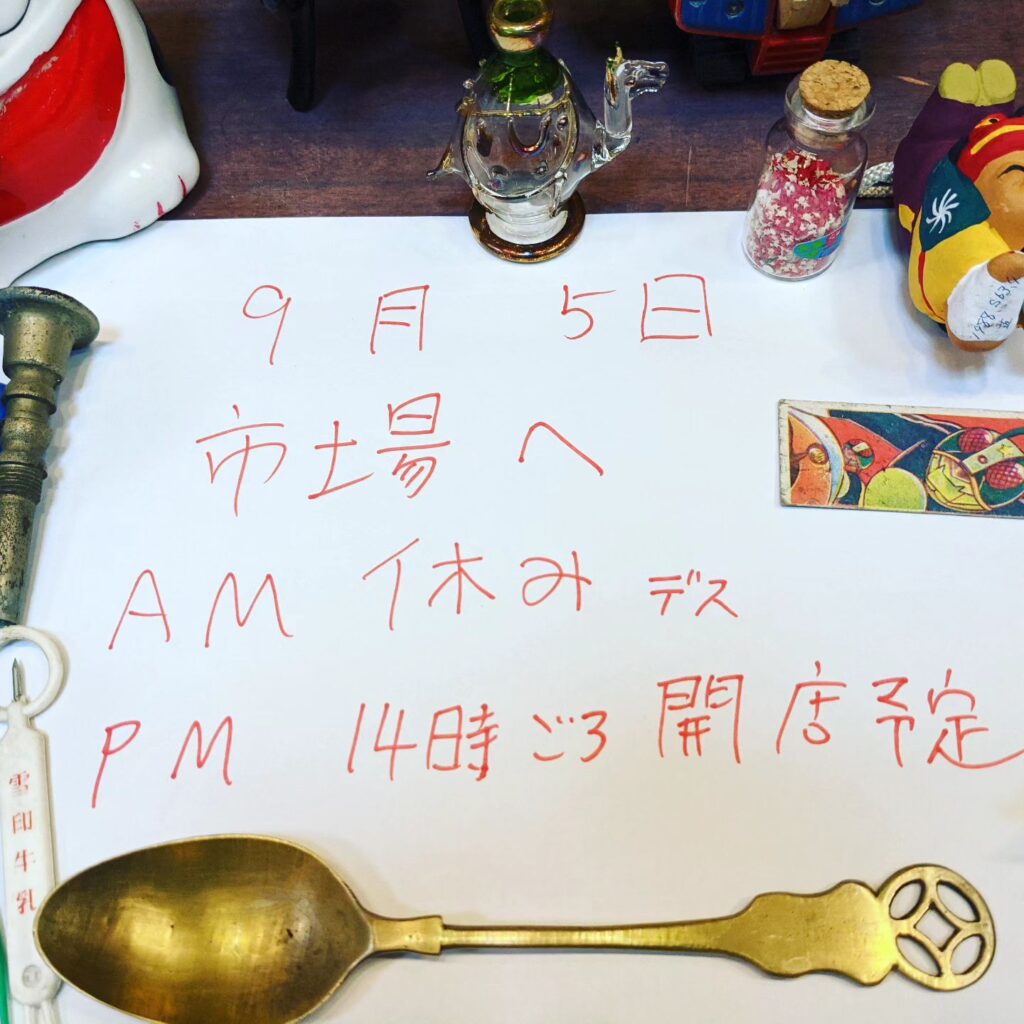 9月 5日
市場へ
AM 休み デス
PM 14時ごろ開店予定
雪印牛乳
1988 S63